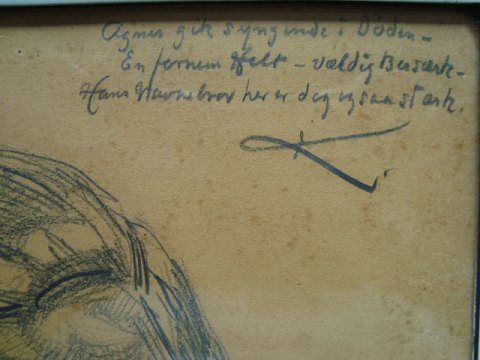 Agner gik syngende i Døden –
En fornem Helt – vældig Bersærk –
Hans Navnebror her er dog ogsaa stærk.